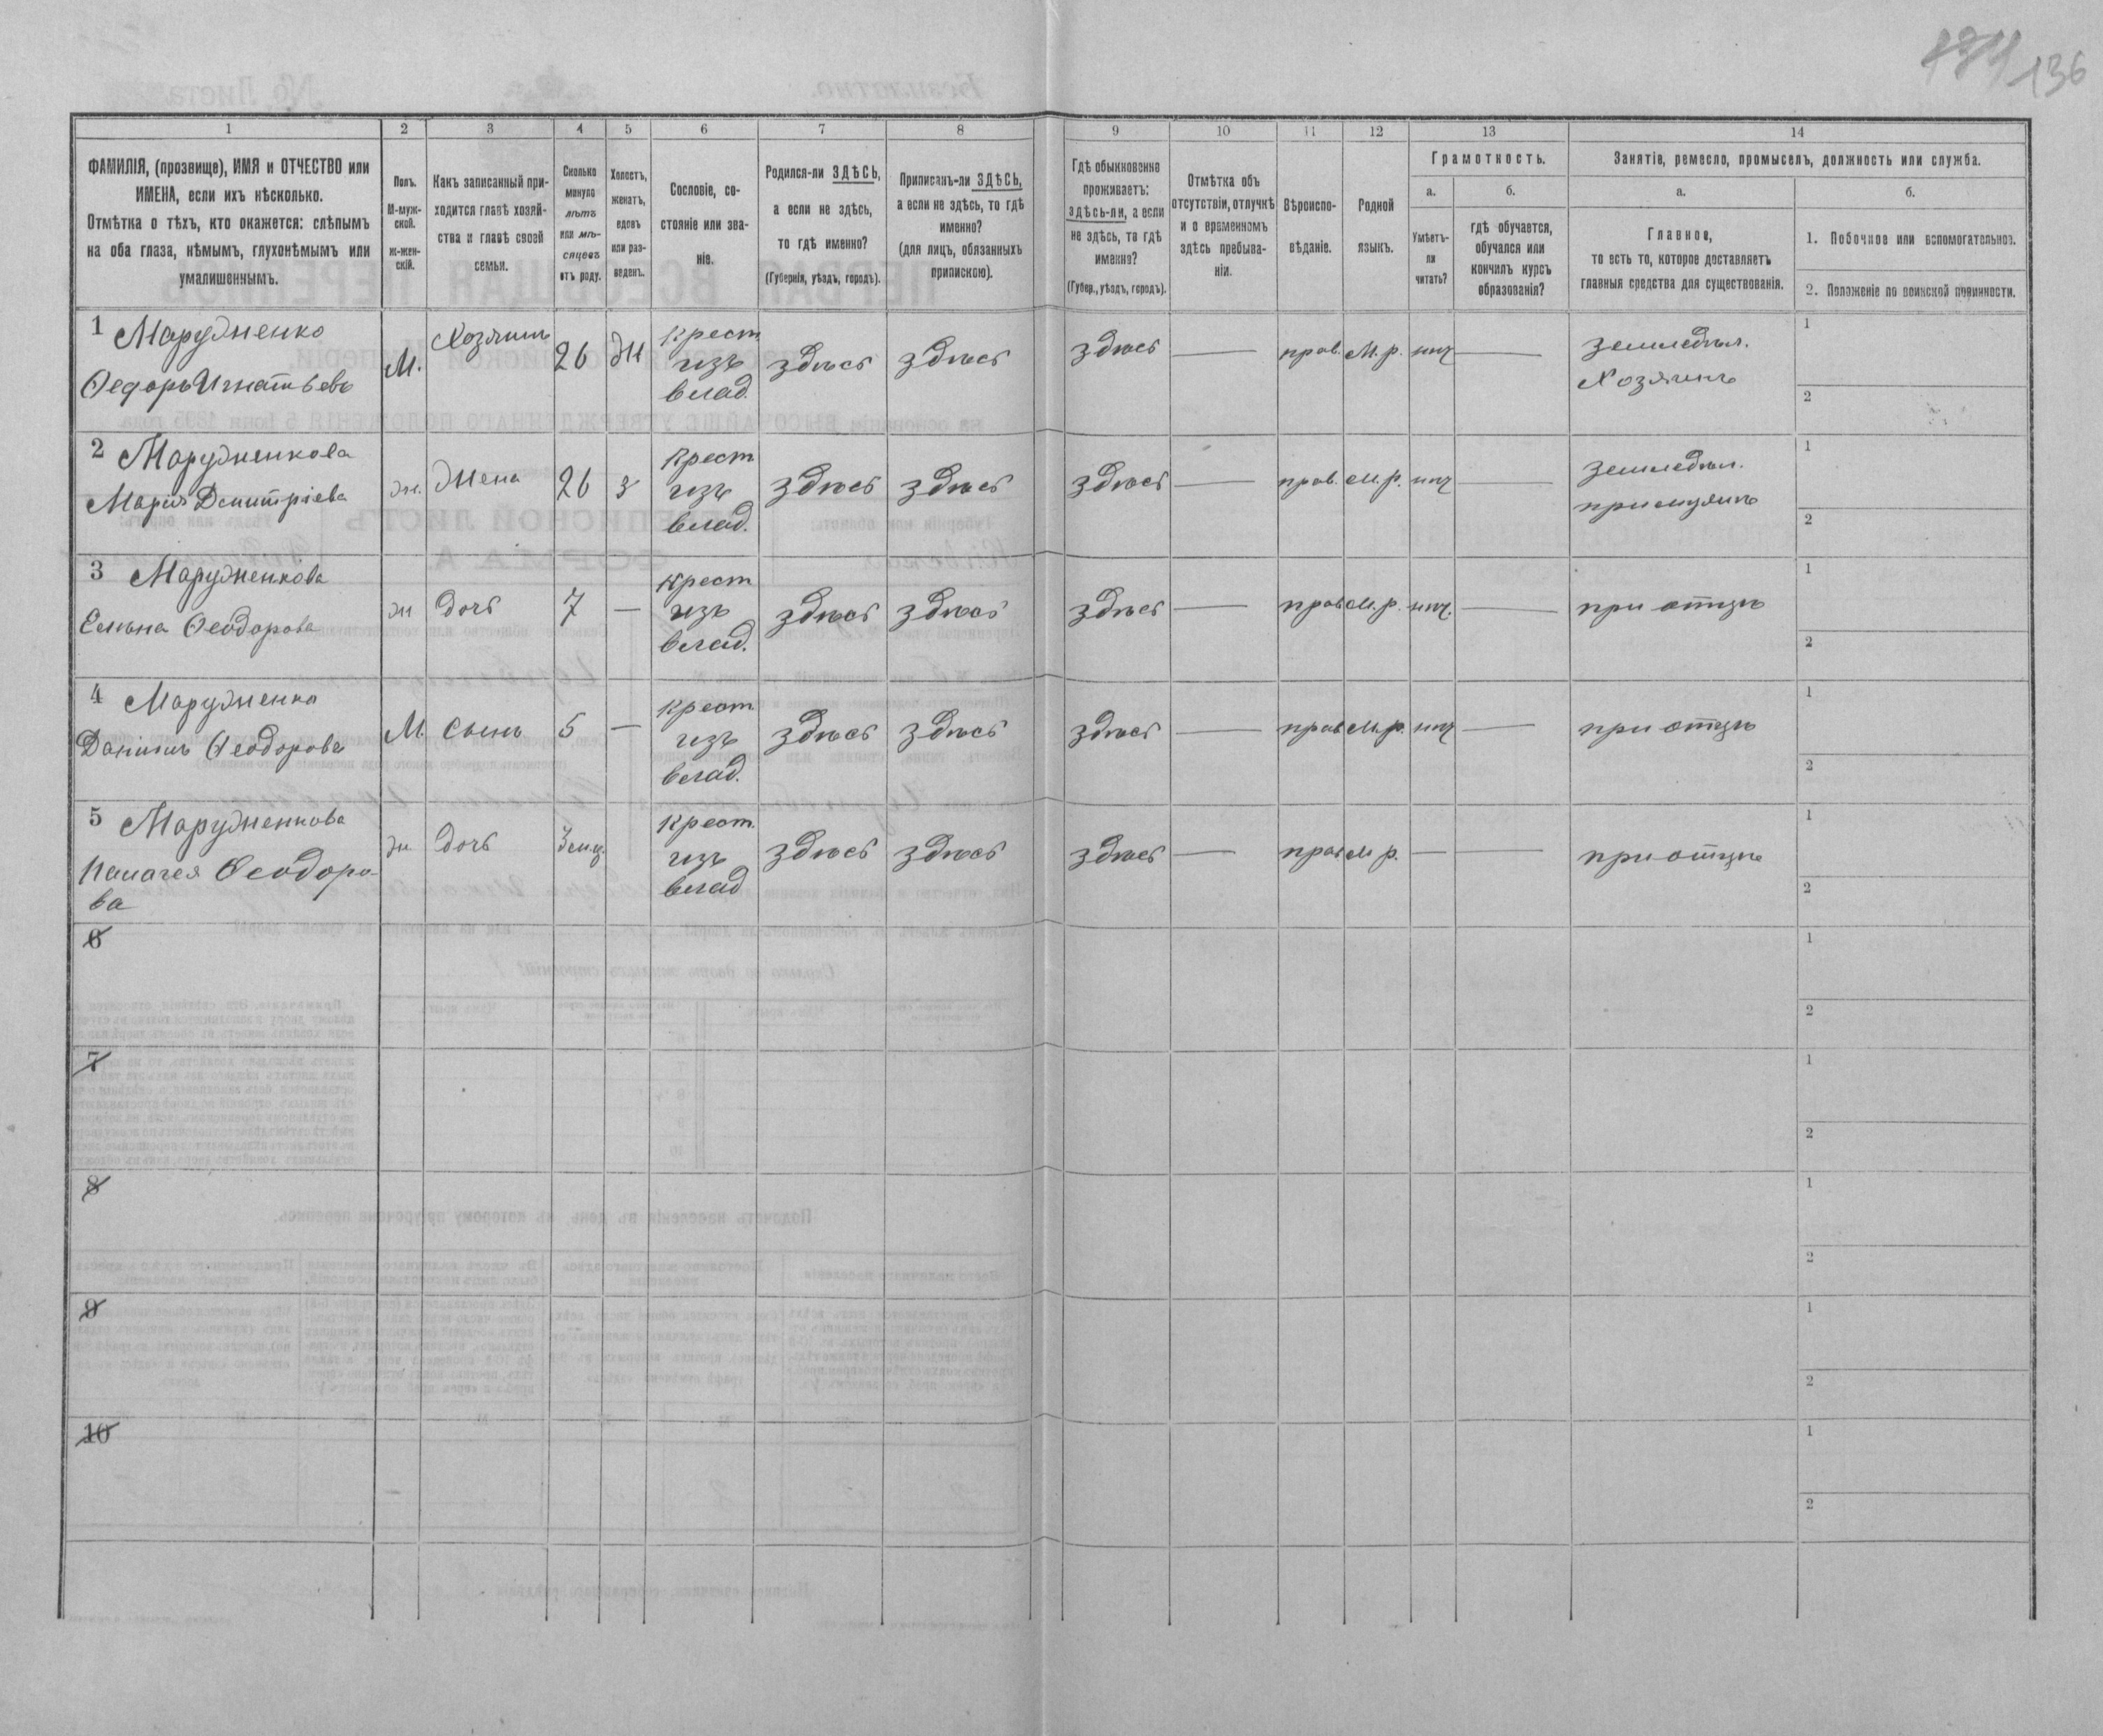 136
1
2
3
4
5
6
7
8
9
10
11
12
13
14
ФАМИЛІЯ, (прозвище), ИМЯ и ОТЧЕСТВО или
ИМЕНА, если ихъ нѣсколько.
Отмѣтка о тѣхъ, кто окажется: слѣпымъ
на оба глаза, нѣмымъ, глухонѣмымъ или
умалишеннымъ.
Полъ.
М-муж-
ской.
Ж-жен-
скій.
Какъ записанный при-
ходится главѣ хозяй-
ства и главѣ своей
семьи.
Сколько
минуло
лѣтъ
или мѣ-
сяцевъ
отъ роду.
Холостъ,
женатъ,
вдовъ
или раз-
веденъ.
Сословіе, со-
стояніе или зва-
ніе.
Родился-ли ЗДѢСЬ,
а если не здѣсь,
то гдѣ именно?
(Губернія, уѣздъ, городъ).
Приписанъ-ли ЗДѢСЬ,
а если не здѣсь, то гдѣ
именно?
(для лицъ, обязанныхъ
припискою).
Гдѣ обыкновенно
проживаетъ:
здѣсь-ли, а если
не здѣсь, то гдѣ
именно?
(Губер., уѣздъ, городъ).
Отмѣтка объ
отсутствіи, отлучкѣ
и о временномъ
здѣсь пребыва-
ніи.
Вѣроиспо-
вѣданіе.
Родной
языкъ.
Грамотность.
а.
Умѣетъ-
ли
читать?
б.
гдѣ обучается,
обучался или
кончилъ курсъ
образованія?
Занятіе, ремесло, промыселъ, должность или служба.
а.
Главное,
то есть то, которое доставляетъ
главныя средства для существованія.
б.
1. Побочное или вспомогательное.
2. Положеніе по воинской повинности.
1 Марудженко
Ѳедоръ Игнатьевъ
М.
Хозяинъ
26
Ж
Крест.
изъ
влад.
здѣсь
здѣсь
здѣсь
—
прав.
М.р.
нѣт
—
земледѣл.
Хозяинъ
1
2
2 Марудженкова
Марія Дмитріева
ж.
Жена
26
З
Крест
изъ
влад.
здѣсь
здѣсь
здѣсь
—
прав.
М.р.
нѣт
—
земледѣл.
при мужѣ
1
2
3 Марудженкова
Елена Ѳеодорова
ж
дочь
7
—
Крест
изъ
влад.
здѣсь
здѣсь
здѣсь
—
прав
М.р.
нѣт.
—
при отцѣ
1
2
4 Марудженко
Даніилъ Ѳеодоровъ
М.
Сынъ
5
—
Крест
изъ
влад.
здѣсь
здѣсь
здѣсь
—
прав
М.р.
нѣт
—
при отцѣ
1
2
5 Марудженкова
Палагея Ѳеодоро-
ва
ж
дочь
3 мц.
Крест.
изъ
влад
здѣсь
здѣсь
здѣсь
—
прав
М р.
—
—
при отцѣ
1
2
6
1
2
7
1
2
8
1
2
9
1
2
10
1
2